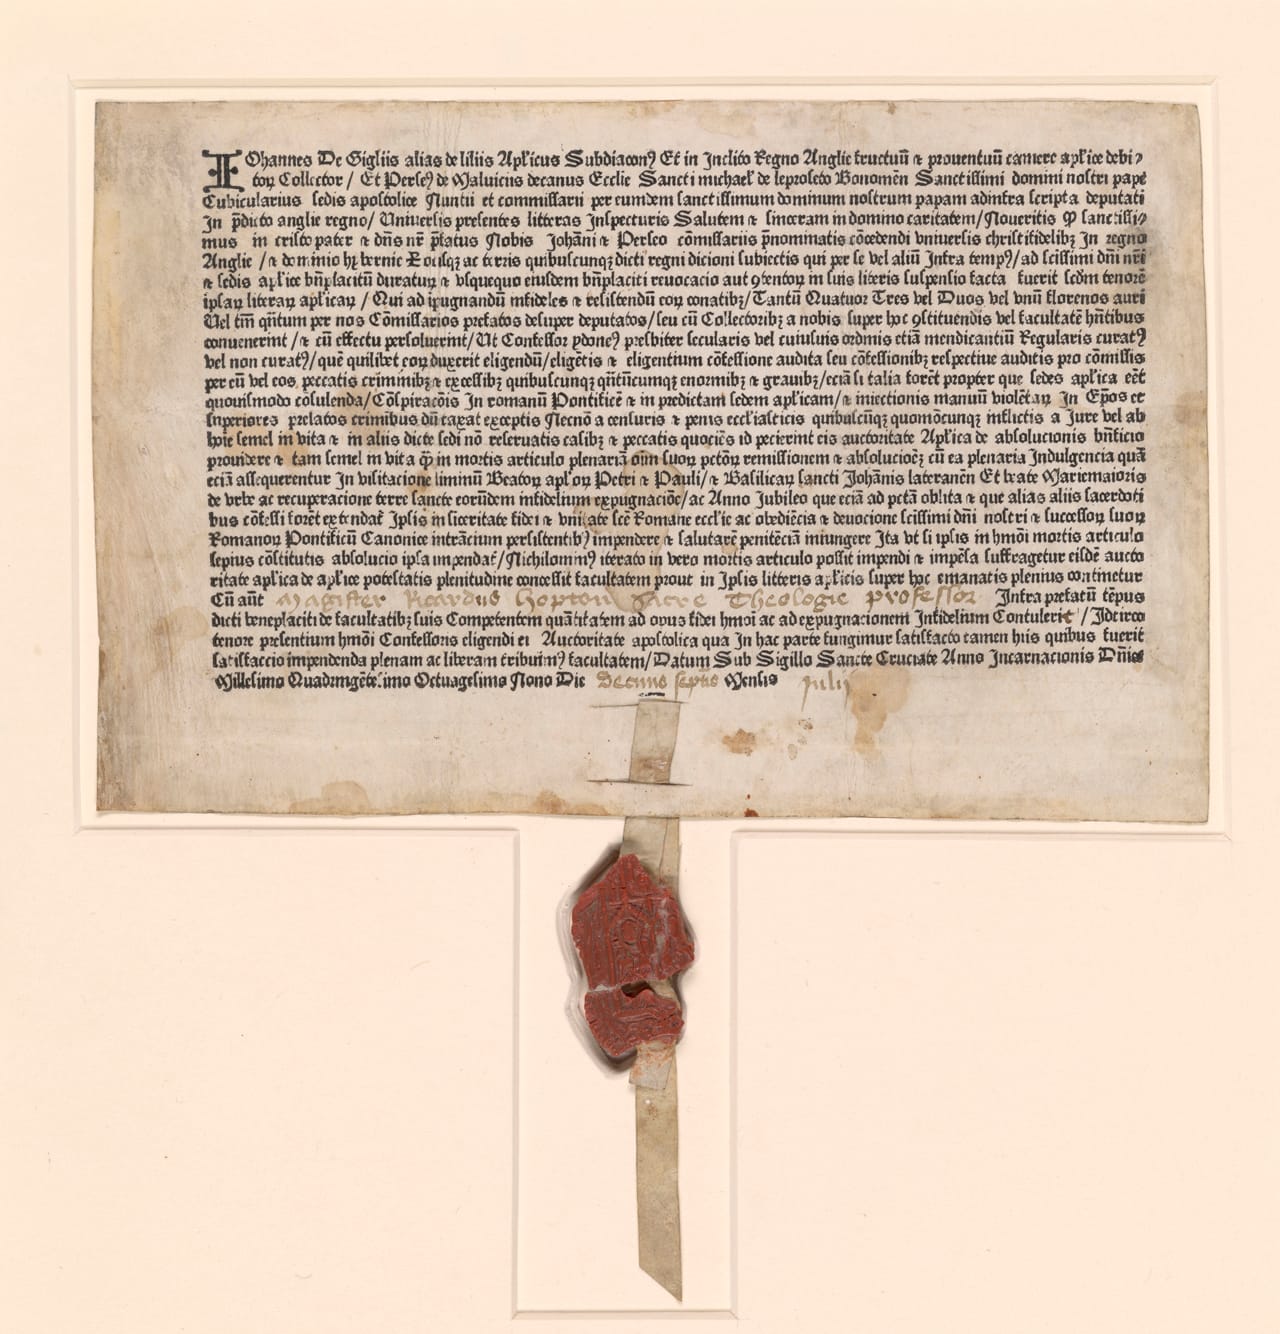 IOhannes De Gigliis alias de liliis Apl'icus Subdiacon⁹ Et in Inclito Regno Anglie fructuū ⁊ prouentuū camere apl'ice debi⸗
toꝝ Collector / Et Perseꝰ de Maluiciis decanus Ecclie Sancti michael' de leproseto Bononień Sanctissimi domini nostri pape
Cubicularius sedis apostolice Nuntii et commissarii per eumdem sanctissimum dominum nostrum papam adinfra scripta deputati
In p̄dicto anglie regno/ Uniuersis presentes litteras Inspecturis Salutem ⁊ sinceram in domino caritatem/Noueritis ꝙ sanctissi⸗
mus in cristo pater ⁊ dn̄s nr̄ p̄fatus Nobis Johāni ⁊ Perseo cōmissariis p̄nominatis cōcedendi vniuersis christifidelibꝫ In regno
Anglie /⁊ dominio hybernie ac terris quibuscunqꝫ dicti regni dicioni subiectis qui per se vel aliū Infra tempꝰ/ad scissimi dn̄i nr̄i
⁊ sedis apl'ice bn̄placitū duraturꝝ ⁊ vsquequo eiusdem bn̄placiti reuocacio aut ꝯtentoꝝ in suis literis suspensio facta fuerit scdm̄ tenorē
ipsaꝝ literaꝝ apl'icaꝝ / Qui ad īpugnandū infideles ⁊ resistendū eoꝝ conatibꝫ/Tantū Quatuor Tres vel Duos vel vnū florenos auri
Vel tm̄ qn̄tum per nos Cōmissarios prefatos desuper deputatos/seu cū Collectoribꝫ a nobis super hoc ꝯstituendis vel facultatē hn̄tibus
conuenerint /⁊ cū effectu persoluerint/Ut Confessor ydoneꝰ presbiter secularis vel cuiusuis ordinis etiā mendicantiū Regularis curatꝰ
vel non curatꝰ/quē quilibet eoꝝ duxerit eligendū/eligētis ⁊ eligentium cōfessione audita seu cōfessionibꝫ respectiue auditis pro cōmissis
per eū vel eos peccatis criminibꝫ ⁊ excessibꝫ quibuscunqꝫ qn̄tūcumqꝫ enormibꝫ ⁊ grauibꝫ/eciā si talia forēt propter que sedes apl'ica eēt
quouismodo cōsulenda/Cōspiracōis In romanū Pontificē ⁊ in predictam sedem apl'icam/⁊ iniectionis manuū violētaꝝ In Ep̄os et
superiores prelatos criminibus dū taxat exceptis Necnō a censuris ⁊ penis eccl'iasticis quibuscūqꝫ quomōcunqꝫ inflictis a Jure vel ab
hoīe semel in vita ⁊ in aliis dicte sedi nō reseruatis casibꝫ ⁊ peccatis quociēs id pecierint eis auctoritate Apl'ica de absolucionis bn̄ficio
prouidere ⁊ tam semel in vita q̄ in mortis articulo plenariā oīm suoꝝ pctōꝝ remissionem ⁊ absolucioēꝫ cū ea plenaria Indulgencia quā
eciā assequerentur In visitacione liminū Beatoꝝ apl'oꝝ Petri ⁊ Pauli/⁊ Basilicaꝝ sancti Johānis lateranēn Et beate Mariemaioris
de vrbe ac recuperacione terre sancte eorūdem infidelium expugnaciōe/ac Anno Jubileo que eciā ad pctā oblita ⁊ que alias aliis sacerdoti
bus cōfessi forēt extendat̄ Ipsis in siceritate fidei ⁊ vnitate scē Romane eccl'ie ac obediēcia ⁊ deuocione scissimi dn̄i nostri ⁊ successoꝝ suoꝝ
Romanoꝝ Pontificū Canonice intrācium persistentibꝰ impendere ⁊ salutarē penitēciā iniungere Ita vt si ipsis in hmōi mortis articulo
sepius cōstitutis absolucio ipsa impendat̄/Nichilominꝰ iterato in vero mortis articulo possit impendi ⁊ impēsa suffragetur eisdē aucto
ritate apl'ica de apl'ice potestatis plenitudine concessit facultatem prout in Ipsis litteris apl'icis super hoc emanatis plenius continetur
Cū aūt Magister Ricardus hopton Sacre Theologie professor Infra prefatū tēpus
dicti beneplaciti de facultatibꝫ suis Competentem quātitatem ad opus fidei hmōi ac ad expugnacionem Infidelium Contulerit /Idcirco
tenore presentium hmōi Confessoris eligendi ei Auctoritate apostolica qua In hac parte fungimur satisfacto tamen hiis quibus fuerit
satisfaccio impendenda plenam ac liberam tribuimꝰ facultatem/Datum Sub Sigillo Sancte Cruciate Anno Incarnacionis Dn̄ice
Millesimo Quadringētesimo Octuagesimo Nono Die Decimo septīo Mensis Julij